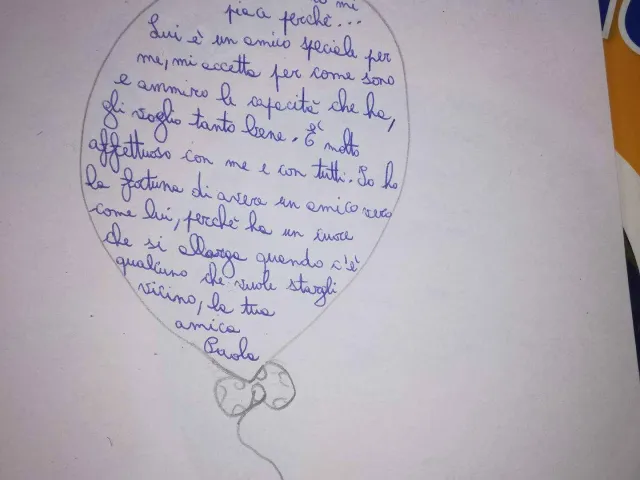 mi
piace perchè...
Lui è un amico speciale per
me, mi accetta per come sono
e ammiro le capacità che ha,
gli voglio tanto bene. È molto
affettuoso con me e con tutti. Io ho
la fortuna di avere un amico vero
come lui, perchè ha un cuore
che si allarga quando c'è
qualcuno che vuole stargli
vicino, la tua
amica
Paola